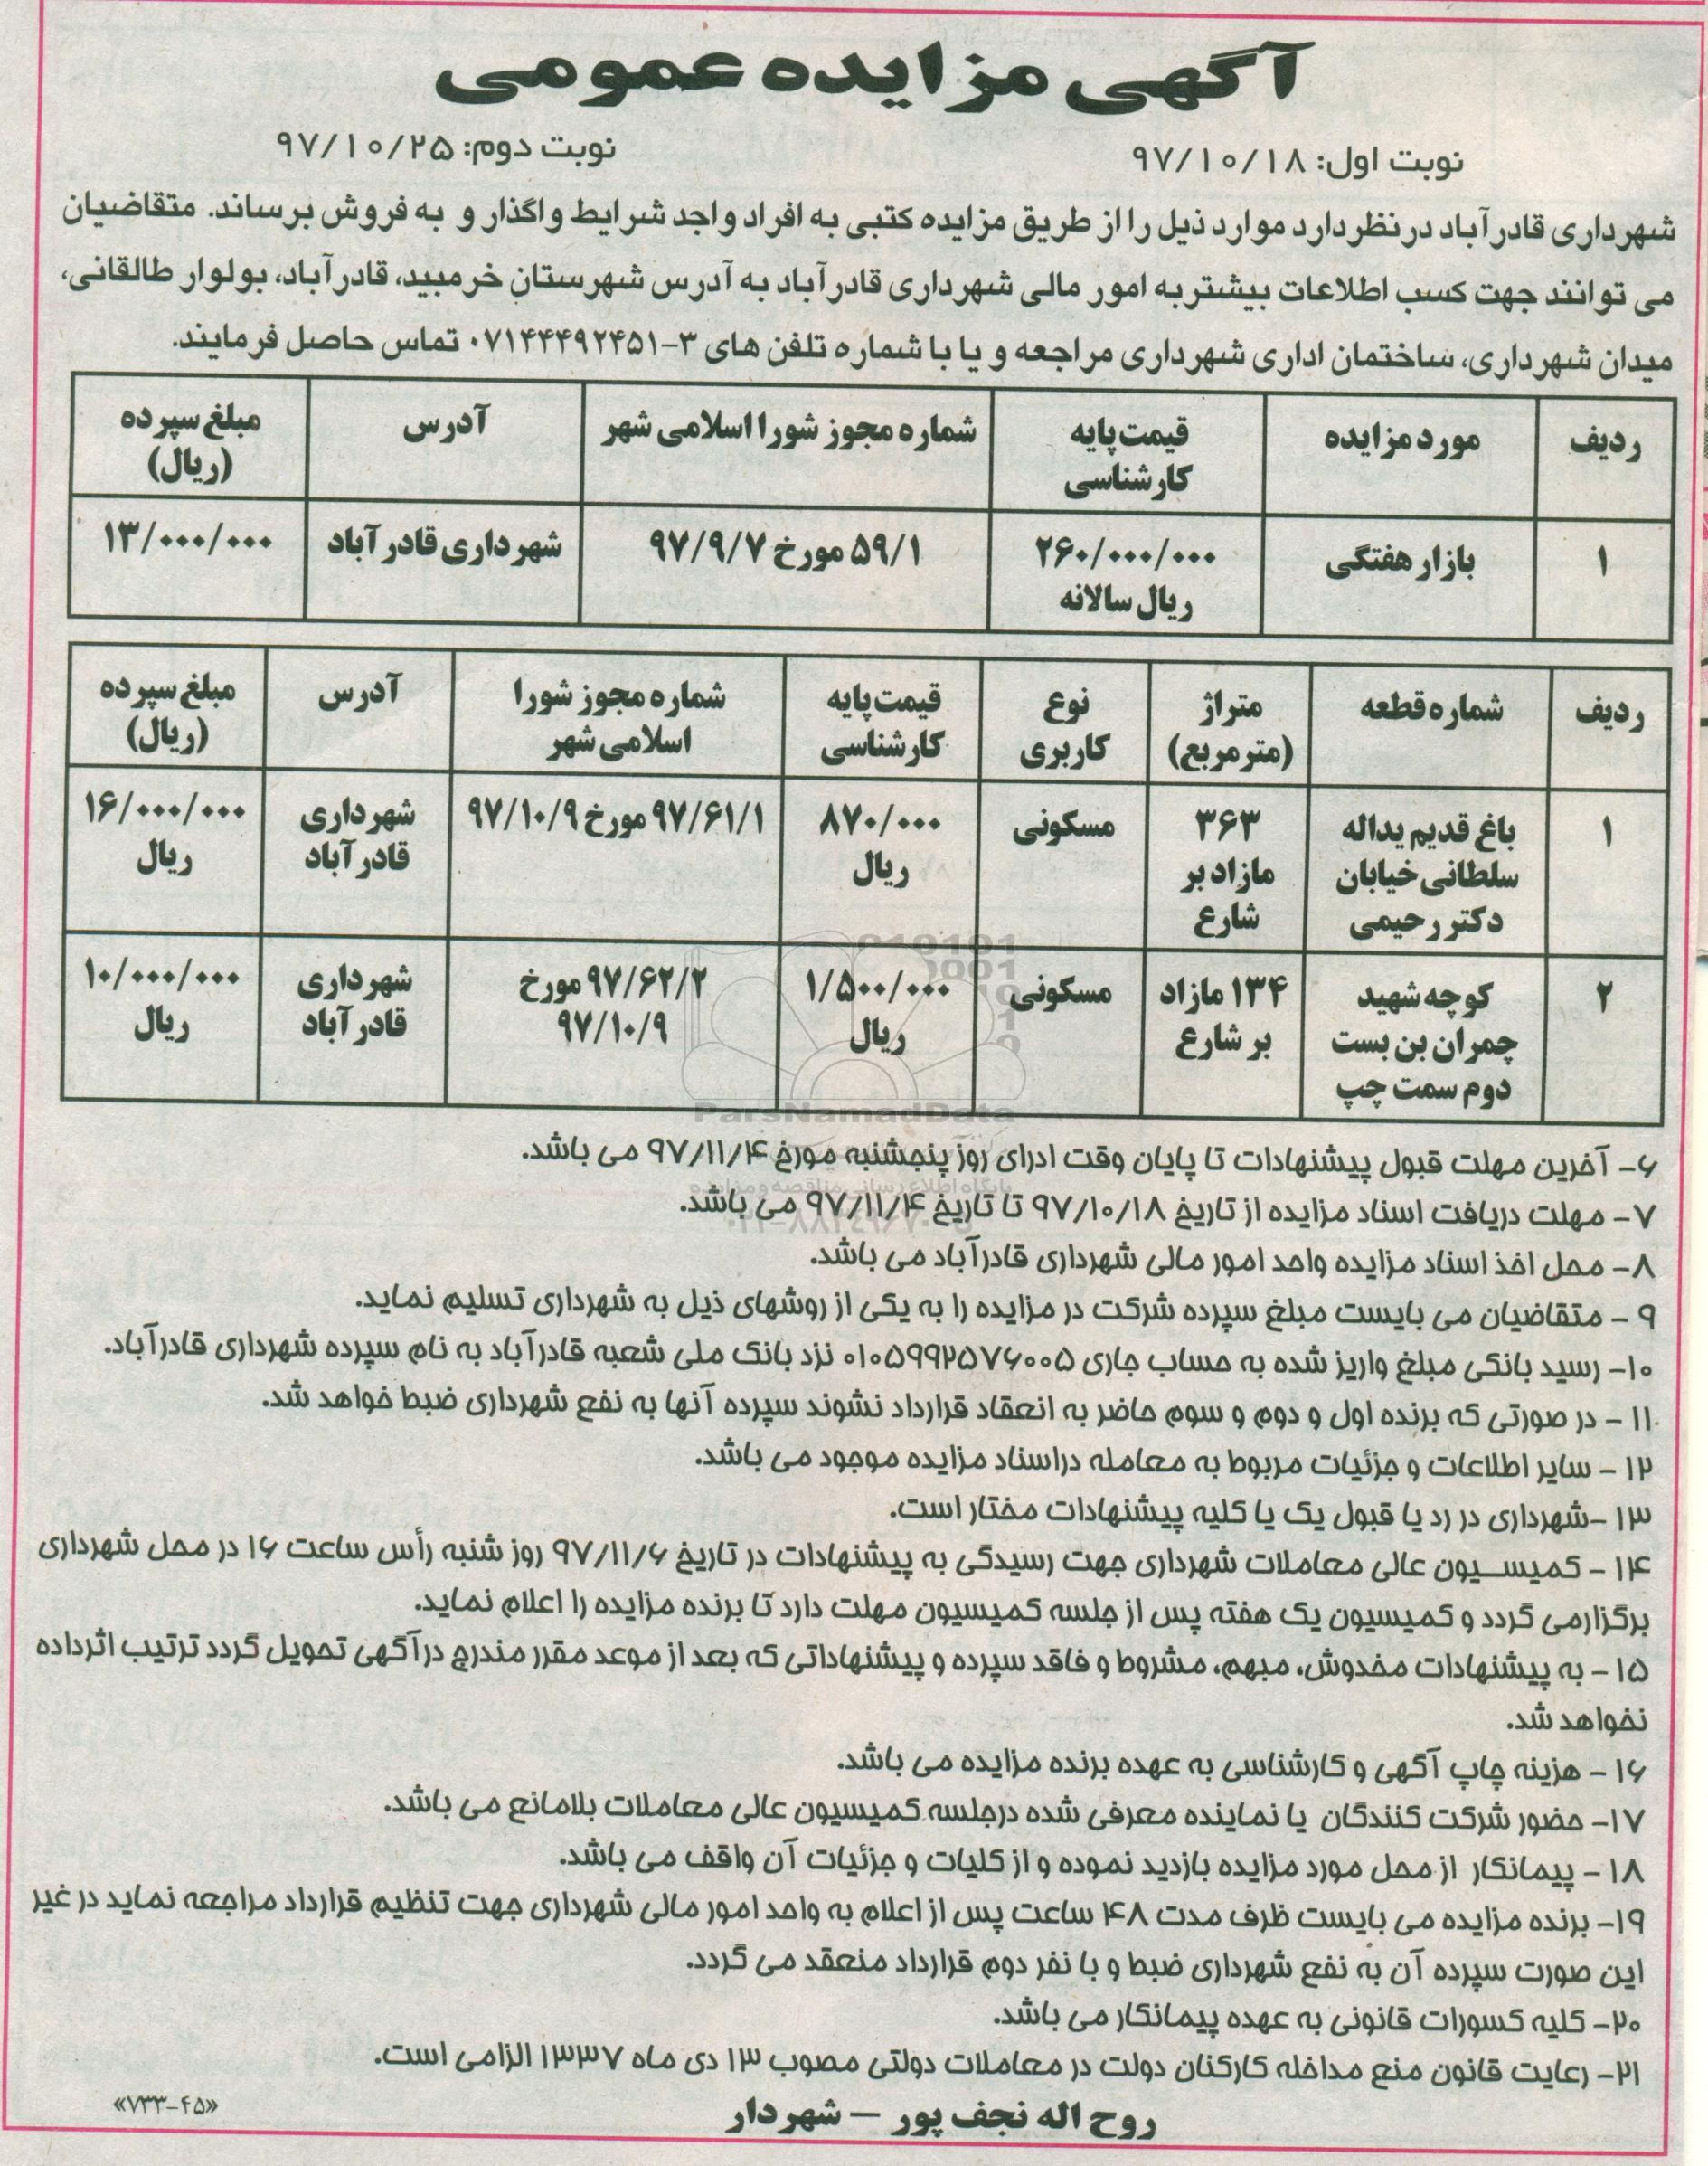 آگهی مزایده عمومی
نوبت اول: ۹۷/۱۰/۱۸
نوبت دوم: ۹۷/۱۰/۲۵
شهرداری قادرآباد درنظردارد موارد ذیل را از طریق مزایده کتبی به افراد واجد شرایط واگذار و به فروش برساند. متقاضیان
می توانند جهت کسب اطلاعات بیشتر به امور مالی شهرداری قادرآباد به آدرس شهرستان خرمبید، قادرآباد، بولوار طالقانی،
میدان شهرداری، ساختمان اداری شهرداری مراجعه و یا با شماره تلفن های ۳-۰۷۱۴۴۴۹۲۴۵۱ تماس حاصل فرمایند.
ردیف | مورد مزایده | قیمت پایه کارشناسی | شماره مجوز شورا اسلامی شهر | آدرس | مبلغ سپرده (ریال)
۱ | بازار هفتگی | ۲۶۰/۰۰۰/۰۰۰ ریال سالانه | ۵۹/۱ مورخ ۹۷/۹/۷ | شهرداری قادرآباد | ۱۳/۰۰۰/۰۰۰
ردیف | شماره قطعه | متراژ (مترمربع) | نوع کاربری | قیمت پایه کارشناسی | شماره مجوز شورا اسلامی شهر | آدرس | مبلغ سپرده (ریال)
۱ | باغ قدیم یداله سلطانی خیابان دکتر رحیمی | ۳۶۳ مازاد بر شارع | مسکونی | ۸۷۰/۰۰۰ ریال | ۹۷/۶۱/۱ مورخ ۹۷/۱۰/۹ | شهرداری قادرآباد | ۱۶/۰۰۰/۰۰۰ ریال
۲ | کوچه شهید چمران بن بست دوم سمت چپ | ۱۳۴ مازاد بر شارع | مسکونی | ۱/۵۰۰/۰۰۰ ریال | ۹۷/۶۲/۲ مورخ ۹۷/۱۰/۹ | شهرداری قادرآباد | ۱۰/۰۰۰/۰۰۰ ریال
ParsNamadData
۶- آخرین مهلت قبول پیشنهادات تا پایان وقت ادرای روز پنجشنبه مورخ ۹۷/۱۱/۴ می باشد.
پایگاه اطلاع رسانی مناقصه و مزایده
۷- مهلت دریافت اسناد مزایده از تاریخ ۹۷/۱۰/۱۸ تا تاریخ ۹۷/۱۱/۴ می باشد.
۸- محل اخذ اسناد مزایده واحد امور مالی شهرداری قادرآباد می باشد.
۹ - متقاضیان می بایست مبلغ سپرده شرکت در مزایده را به یکی از روشهای ذیل به شهرداری تسلیم نماید.
۱۰- رسید بانکی مبلغ واریز شده به حساب جاری ۰۱۰۵۹۹۲۵۷۶۰۰۵ نزد بانک ملی شعبه قادرآباد به نام سپرده شهرداری قادرآباد.
۱۱ - در صورتی که برنده اول و دوم و سوم حاضر به انعقاد قرارداد نشوند سپرده آنها به نفع شهرداری ضبط خواهد شد.
۱۲ - سایر اطلاعات و جزئیات مربوط به معامله دراسناد مزایده موجود می باشد.
۱۳ -شهرداری در رد یا قبول یک یا کلیه پیشنهادات مختار است.
۱۴ - کمیسیون عالی معاملات شهرداری جهت رسیدگی به پیشنهادات در تاریخ ۹۷/۱۱/۶ روز شنبه رأس ساعت ۱۶ در محل شهرداری
برگزارمی گردد و کمیسیون یک هفته پس از جلسه کمیسیون مهلت دارد تا برنده مزایده را اعلام نماید.
۱۵ - به پیشنهادات مخدوش، مبهم، مشروط و فاقد سپرده و پیشنهاداتی که بعد از موعد مقرر مندرج درآگهی تحویل گردد ترتیب اثرداده
نخواهد شد.
۱۶ - هزینه چاپ آگهی و کارشناسی به عهده برنده مزایده می باشد.
۱۷- حضور شرکت کنندگان یا نماینده معرفی شده درجلسه کمیسیون عالی معاملات بلامانع می باشد.
۱۸ - پیمانکار از محل مورد مزایده بازدید نموده و از کلیات و جزئیات آن واقف می باشد.
۱۹- برنده مزایده می بایست ظرف مدت ۴۸ ساعت پس از اعلام به واحد امور مالی شهرداری جهت تنظیم قرارداد مراجعه نماید در غیر
این صورت سپرده آن به نفع شهرداری ضبط و با نفر دوم قرارداد منعقد می گردد.
۲۰- کلیه کسورات قانونی به عهده پیمانکار می باشد.
۲۱- رعایت قانون منع مداخله کارکنان دولت در معاملات دولتی مصوب ۱۳ دی ماه ۱۳۳۷ الزامی است.
روح اله نجف پور - شهردار
«۷۳۳-۴۵»